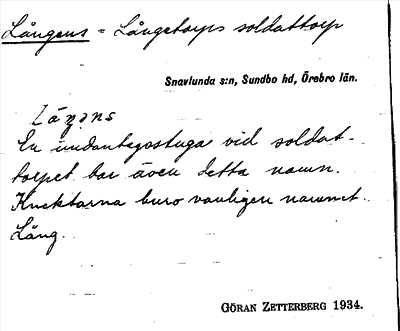 Långens = Långetorps soldattorp
Snavlunda s:n, Sundbo hd, Örebro län.
En undantagsstuga vid soldat-
torpet bar även detta namn.
Knektarna buro vanligen namnet
Lång.
GÖRAN ZETTERBERG 1934.